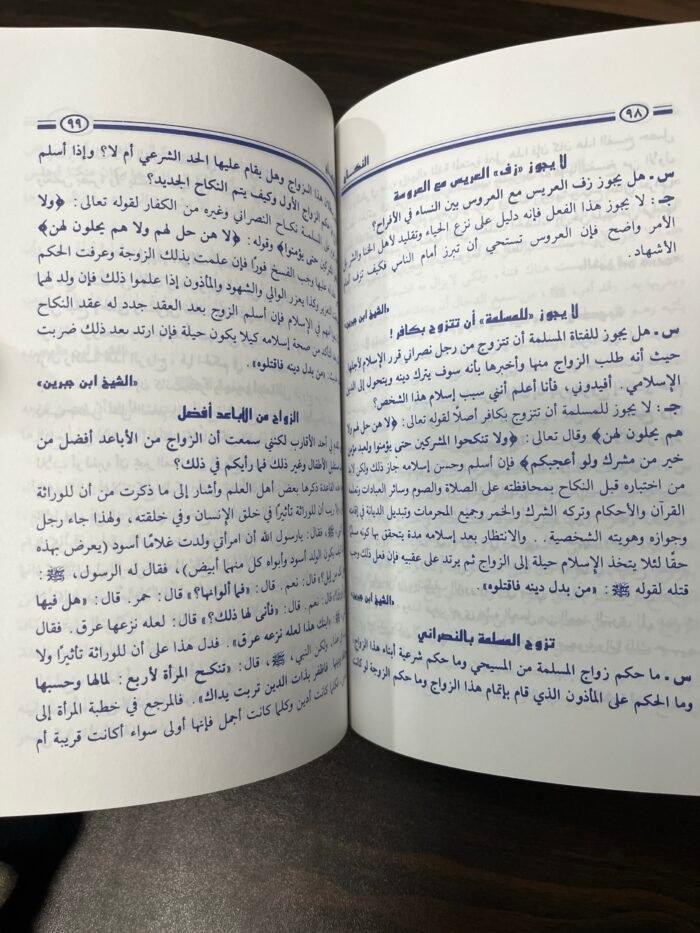 ٩٨
النكـــاح
لا يجوز «زف» العريس مع العروسة
س . هل يجوز زف العريس مع العروس بين النساء في الأفراح؟
جـ : لا يجوز هذا الفعل فإنه دليل على نزع الحياء وتقليد لأهل الخنا والشر بل
الأمر واضح فإن العروس تستحي أن تبرز أمام الناس فكيف تزف أمام
الأشهاد .
«الشيخ ابن جبرين»
لا يجوز «للمسلمة» أن تتزوج بكافر !
س . هل يجوز للفتاة المسلمة أن تتزوج من رجل نصراني قرر الإسلام لأجلها
حيث أنه طلب الزواج منها وأخبرها بأنه سوف يترك دينه ويتحول إلى الدين
الإسلامي . أفيدوني، فأنا أعلم أنني سبب إسلام هذا الشخص؟
جـ : لا يجوز للمسلمة أن تتزوج بكافر أصلاً لقوله تعالى: ﴿لا هن حل لهم ولا
هم يحلون لهن﴾ وقال تعالى: ﴿ولا تنكحوا المشركين حتى يؤمنوا ولعبد مؤمن
خير من مشرك ولو أعجبكم﴾ فإن أسلم وحسن إسلامه جاز ذلك ولكن لابد
من اختباره قبل النكاح بمحافظته على الصلاة والصوم وسائر العبادات وتعلمه
القرآن والأحكام وتركه الشرك والخمر وجميع المحرمات وتبديل الديانة في إقامته
وجوازه وهويته الشخصية . . والانتظار بعد إسلامه مدة يتحقق بها كونه مسلمًا
حقًا لئلا يتخذ الإسلام حيلة إلى الزواج ثم يرتد على عقبيه فإن فعل ذلك وجب
قتله لقوله ﷺ : «من بدل دينه فاقتلوه» .
«الشيخ ابن جبرين»
تزوج المسلمة بالنصراني
س . ما حكم زواج المسلمة من المسيحي وما حكم شرعية أبناء هذا الزواج،
وما الحكم على المأذون الذي قام بإتمام هذا الزواج وما حكم الزوجة لو كانت
٩٩
هذا الزواج وهل يقام عليها الحد الشرعي أم لا؟ وإذا أسلم
حكم الزواج الأول وكيف يتم النكاح الجديد؟
المسلمة نكاح النصراني وغيره من الكفار لقوله تعالى: ﴿ولا
المشركين حتى يؤمنوا﴾ وقوله: ﴿لا هن حل لهم ولا هم يحلون لهن﴾
عليه وجب الفسخ فورًا فإن علمت بذلك الزوجة وعرفت الحكم
التعزير وكذا يعزر الوالي والشهود والمأذون إذا علموا ذلك فإن ولد لهما
في الإسلام فإن أسلم الزوج بعد العقد جدد له عقد النكاح
التأكد من صحة إسلامه كيلا يكون حيلة فإن ارتد بعد ذلك ضربت
«من بدل دينه فاقتلوه» .
«الشيخ ابن جبرين»
الزواج من الأباعد أفضل
في أحد الأقارب لكنني سمعت أن الزواج من الأباعد أفضل من
مستقبل الأطفال وغير ذلك فما رأيكم في ذلك؟
القاعدة ذكرها بعض أهل العلم وأشار إلى ما ذكرت من أن للوراثة
ريب أن للوراثة تأثيرًا في خلق الإنسان وفي خلقته، ولهذا جاء رجل
ﷺ، فقال: يارسول الله أن امرأتي ولدت غلامًا أسود (يعرض بهذه
كيف يكون الولد أسود وأبواه كل منهما أبيض)، فقال له الرسول، ﷺ :
من إبل؟» قال: نعم. قال: «فما ألوانها؟» قال: حمر. قال: «هل فيها
قال: نعم. قال: «فأنى لها ذلك؟» قال: لعله نزعها عرق. فقال
«ابنك هذا لعله نزعه عرق» . فدل هذا على أن للوراثة تأثيرًا ولا
ولكن النبي، ﷺ، قال: «تنكح المرأة لأربع : لمالها وحسبها
فاظفر بذات الدين تربت يداك» . فالمرجع في خطبة المرأة إلى
فكلما كانت أدين وكلما كانت أجمل فإنها أولى سواء أكانت قريبة أم